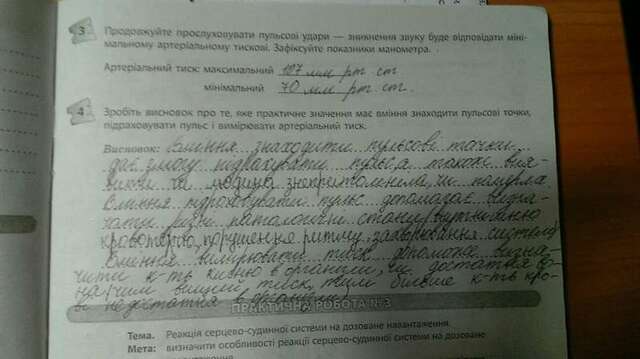 3
Продовжуйте прослуховувати пульсові удари — зникнення звуку буде відповідати міні-
мальному артеріальному тискові. Зафіксуйте показники манометра.
Артеріальний тиск: максимальний 107 мм рт ст
мінімальний 70 мм рт ст.
4
Зробіть висновок про те, яке практичне значення має вміння знаходити пульсові точки,
підраховувати пульс і вимірювати артеріальний тиск.
Висновок: Вміння знаходити пульсові точки
дає змогу підрахувати пульс а також вия-
вити чи людина знепритомніла, чи померла.
Вміння підраховувати пульс допомагає визна-
чати різні патологічні стани: внутрішню
кровотечу, порушення ритму, захворювання системи
Вміння вимірювати тиск допомагає визна-
чити к-ть кисню в організмі, чи достатня
чим вищий тиск, тим більше к-ть кро-
ві недостатня в організмі
ПРАКТИЧНА РОБОТА № 3
Тема. Реакція серцево-судинної системи на дозоване навантаження.
Мета: визначити особливості реакції серцево-судинної системи на дозоване